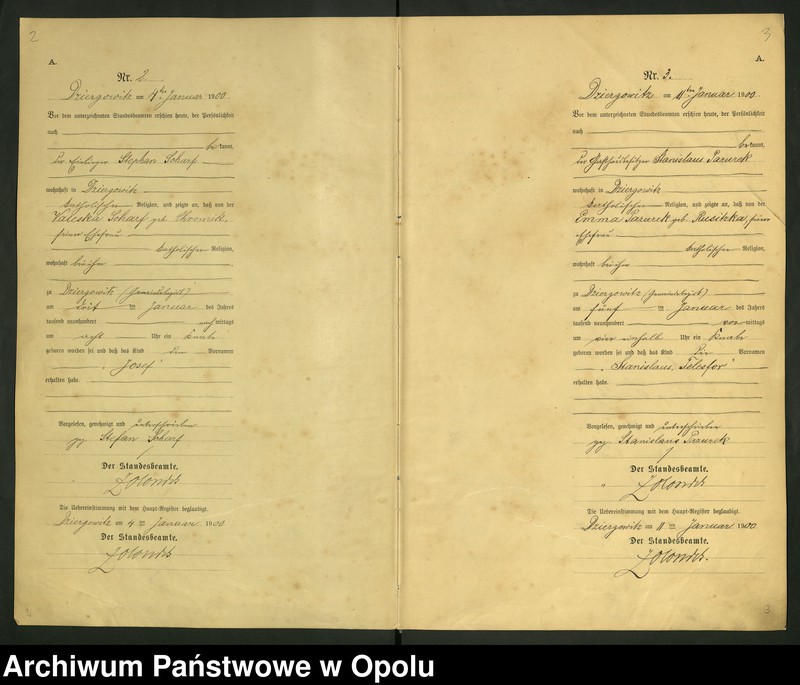 2
A.
Nr. 2
Dziergowitz am 4ten Januar 1900.
Vor dem unterzeichneten Standesbeamten erschien heute, der Persönlichkeit
nach
bekannt,
der Einlieger Stephan Scharf
wohnhaft in Dziergowitz
katholischen Religion, und zeigte an, daß von der
Valeska Scharf geb.
seiner Ehefrau
katholischen Religion,
wohnhaft bei ihm
zu Dziergowitz
am ten Januar des Jahres
tausend neunhundert nachmittags
um acht Uhr ein Knabe
geboren worden sei und daß das Kind den Vornamen
"Josef"
erhalten habe.
Vorgelesen, genehmigt und unterschrieben
gez. Stefan Scharf
Der Standesbeamte.
Die Uebereinstimmung mit dem Haupt-Register beglaubigt.
Dziergowitz am 4ten Januar 1900
Der Standesbeamte.
3
A.
Nr. 3.
Dziergowitz am 11ten Januar 1900.
Vor dem unterzeichneten Standesbeamten erschien heute, der Persönlichkeit
nach
bekannt,
der Gasthausbesitzer Stanislaus Pazurek
wohnhaft in Dziergowitz
katholischen Religion, und zeigte an, daß von der
Emma Pazurek geb. Rusitzka, seiner
Ehefrau
katholischen Religion,
wohnhaft bei ihm
zu Dziergowitz
am fünften Januar des Jahres
tausend neunhundert vormittags
um vier einhalb Uhr ein Knabe
geboren worden sei und daß das Kind die Vornamen
"Stanislaus, Telesfor"
erhalten habe.
Vorgelesen, genehmigt und unterschrieben
gez. Stanislaus Pazurek
Der Standesbeamte.
Die Uebereinstimmung mit dem Haupt-Register beglaubigt.
Dziergowitz am 11ten Januar 1900
Der Standesbeamte.
3
Archiwum Państwowe w Opolu